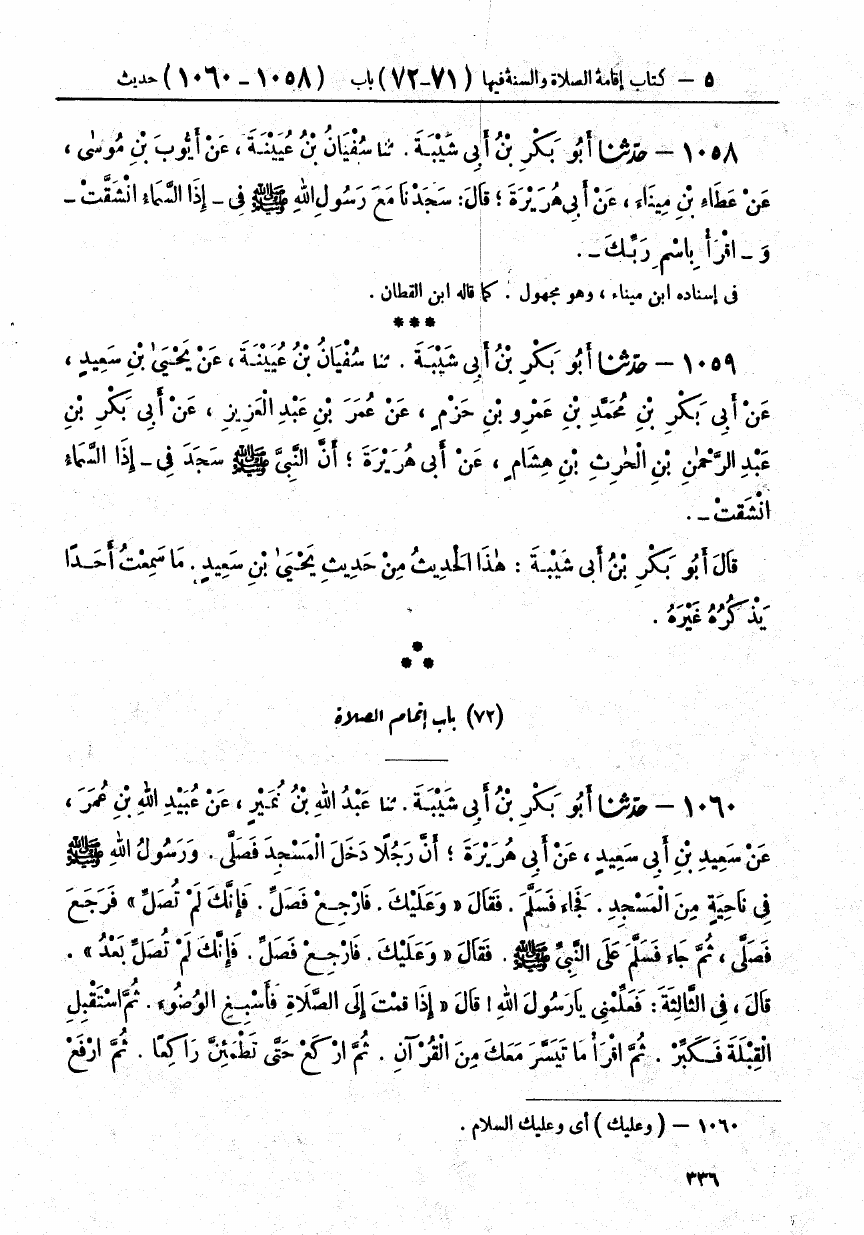 ٥ – كتاب إقامة الصلاة والسنة فيها (٧١-٧٢) باب (١٠٥٨ - ١٠٦٠) حديث
١٠٥٨ – حَدَّثَنَا أَبُو بَكْرِ بْنُ أَبِى شَيْبَةَ . ثنا سُفْيَانُ بْنُ عُيَيْنَةَ ، عَنْ أَيُّوبَ بْنِ مُوسَى ،
عَنْ عَطَاءِ بْنِ مِينَاءَ ، عَنْ أَبِى هُرَيْرَةَ ؛ قَالَ: سَجَدْنَا مَعَ رَسُولِ اللهِ ﷺ فِى – إِذَا السَّمَاءُ انْشَقَّتْ –
وَ – اقْرَأْ بِاسْمِ رَبِّكَ – .
فى إسناده ابن ميناء ، وهو مجهول . كما قاله ابن القطان .
***
١٠٥٩ – حَدَّثَنَا أَبُو بَكْرِ بْنُ أَبِى شَيْبَةَ . ثنا سُفْيَانُ بْنُ عُيَيْنَةَ ، عَنْ يَحْيَىٰ بْنِ سَعِيدٍ ،
عَنْ أَبِى بَكْرِ بْنِ مُحَمَّدِ بْنِ عَمْرِو بْنِ حَزْمٍ ، عَنْ عُمَرَ بْنِ عَبْدِ الْعَزِيزِ ، عَنْ أَبِى بَكْرِ بْنِ
عَبْدِ الرَّحْمٰنِ بْنِ الْحٰرِثِ بْنِ هِشَامٍ ، عَنْ أَبِى هُرَيْرَةَ ؛ أَنَّ النَّبِىَّ ﷺ سَجَدَ فِى – إِذَا السَّمَاءُ
انْشَقَتْ – .
قَالَ أَبُو بَكْرِ بْنُ أَبِى شَيْبَةَ : هٰذَا الْحَدِيثُ مِنْ حَدِيثِ يَحْيَىٰ بْنِ سَعِيدٍ . مَا سَمِعْتُ أَحَدًا
يَذْكُرُهُ غَيْرَهُ .
***
(٧٢) باب إتمام الصلاة
١٠٦٠ – حَدَّثَنَا أَبُو بَكْرِ بْنُ أَبِى شَيْبَةَ . ثنا عَبْدُ اللهِ بْنُ نُمَيْرٍ ، عَنْ عُبَيْدِ اللهِ بْنِ عُمَرَ ،
عَنْ سَعِيدِ بْنِ أَبِى سَعِيدٍ ، عَنْ أَبِى هُرَيْرَةَ ؛ أَنَّ رَجُلًا دَخَلَ الْمَسْجِدَ فَصَلَّى . وَرَسُولُ اللهِ ﷺ
فِى نَاحِيَةٍ مِنَ الْمَسْجِدِ . فَجَاءَ فَسَلَّمَ . فَقَالَ « وَعَلَيْكَ . فَارْجِعْ فَصَلِّ . فَإِنَّكَ لَمْ تُصَلِّ » فَرَجَعَ
فَصَلَّى ، ثُمَّ جَاءَ فَسَلَّمَ عَلَى النَّبِىِّ ﷺ . فَقَالَ « وَعَلَيْكَ . فَارْجِعْ فَصَلِّ . فَإِنَّكَ لَمْ تُصَلِّ بَعْدُ » .
قَالَ ، فِى الثَّالِثَةِ : فَعَلِّمْنِى يَا رَسُولَ اللهِ ! قَالَ « إِذَا قُمْتَ إِلَى الصَّلَاةِ فَأَسْبِغِ الْوُضُوءَ . ثُمَّ اسْتَقْبِلِ
الْقِبْلَةَ فَكَبِّرْ . ثُمَّ اقْرَأْ مَا تَيَسَّرَ مَعَكَ مِنَ الْقُرْآنِ . ثُمَّ ارْكَعْ حَتَّى تَطْمَئِنَّ رَاكِعًا . ثُمَّ ارْفَعْ
١٠٦٠ – ( وعليك ) أى وعليك السلام .
٣٣٦